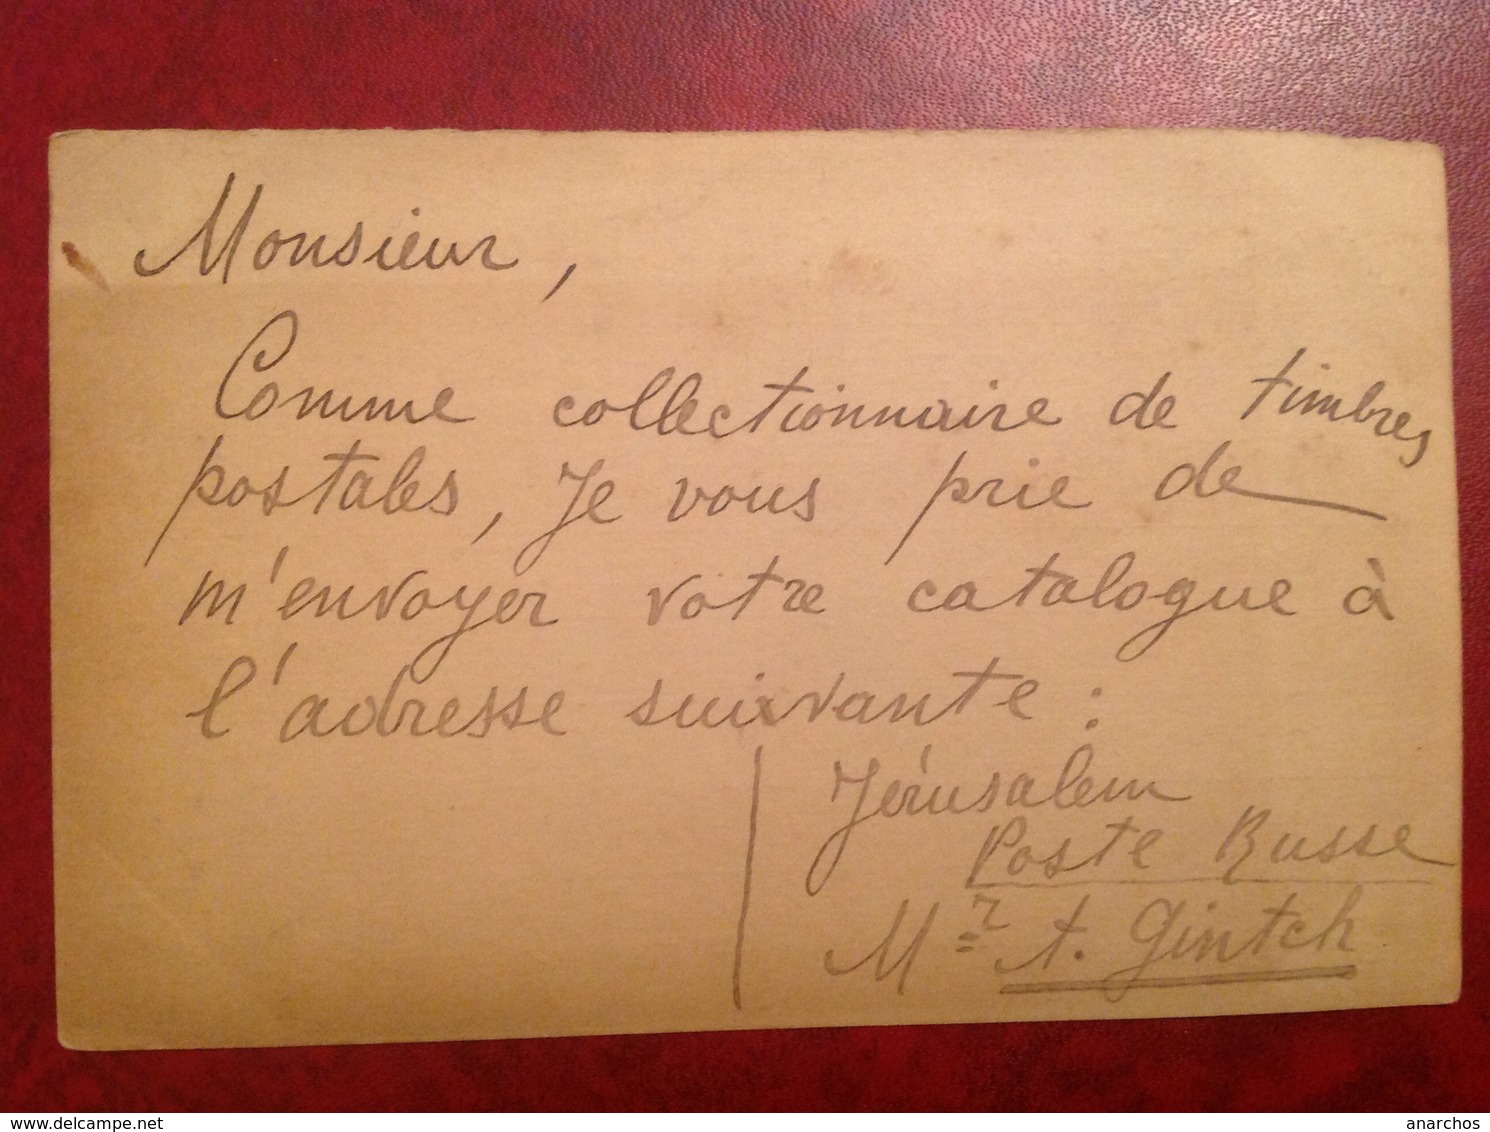 Monsieur,
Comme collectionnaire de timbres
postales, Je vous prie de
m'envoyer votre catalogue à
l'adresse suivante :
Jérusalem
Poste Russe
Mr A. Gintch
www.delcampe.net
anarchos